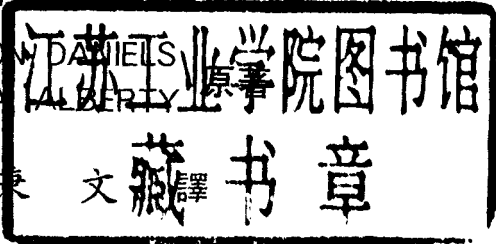 江苏工业学院图书馆
DANIELS
ALBERTY 原著
藏书章
文 譯